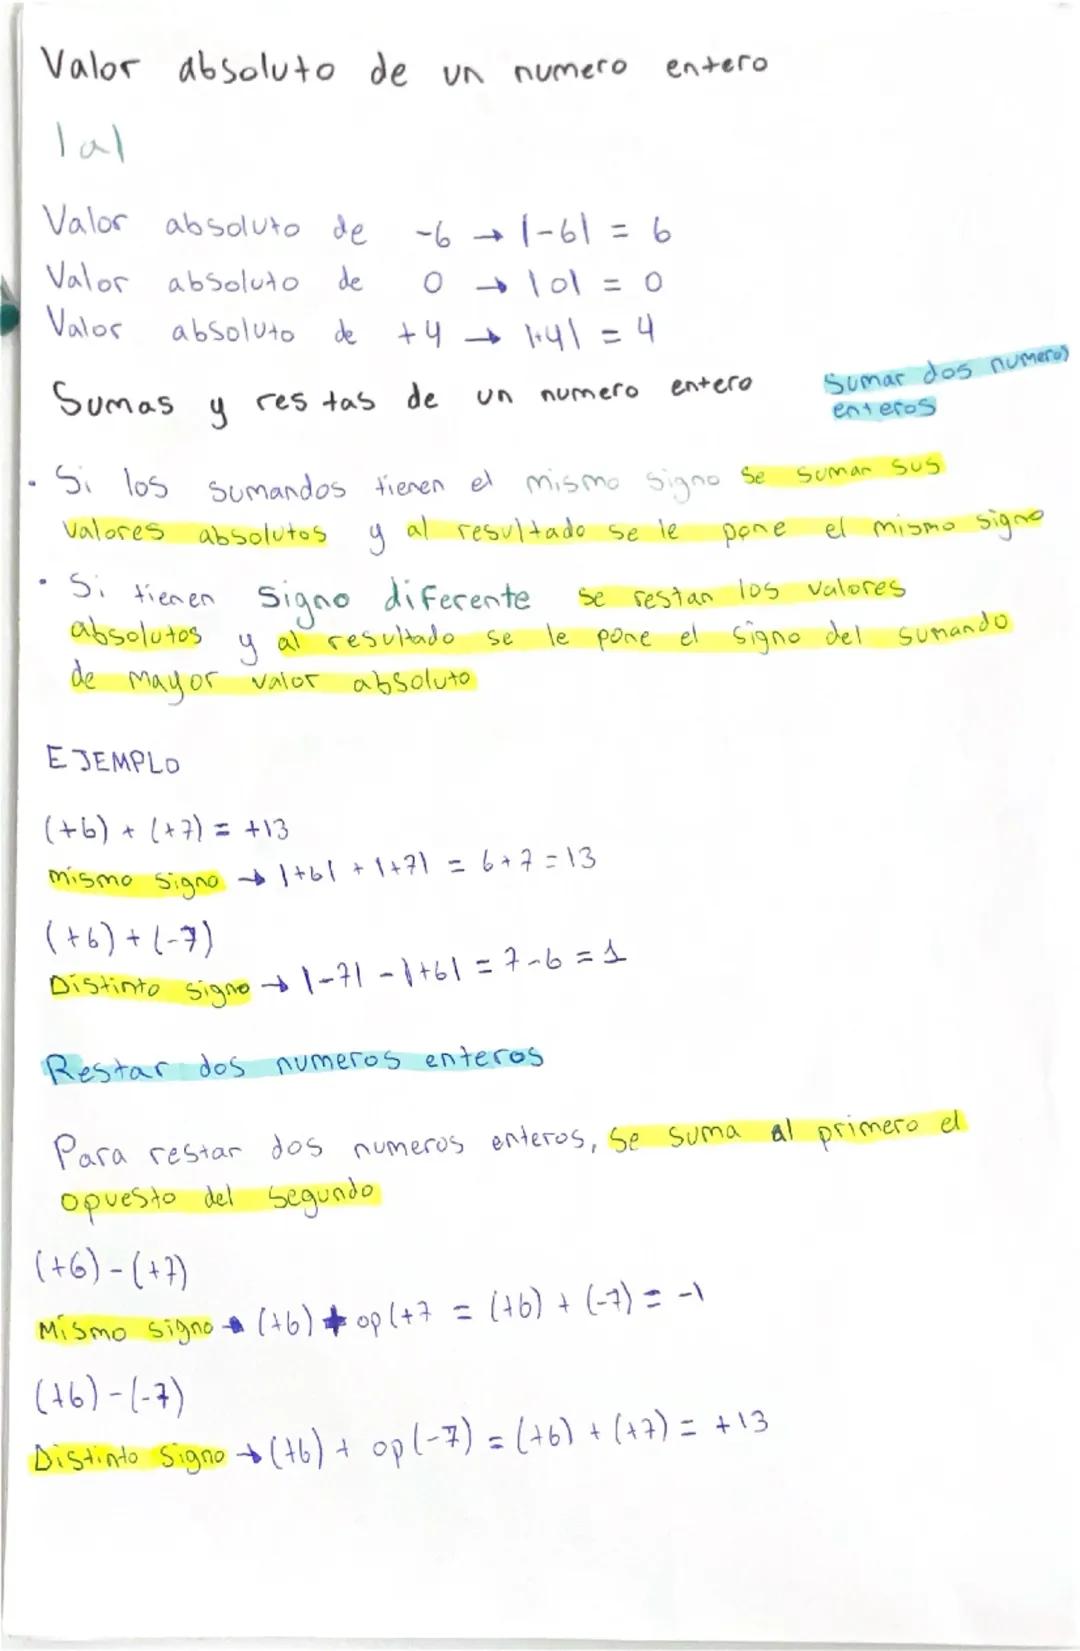 Valor absoluto de un numero entero
|a|
Valor absoluto de -6 → |-6| = 6
Valor absoluto de 0 → |0| = 0
Valor absoluto de +4 → |+4| = 4
Sumas y restas de un numero entero
Sumar dos numeros
enteros
• Si los sumandos tienen el mismo signo se suman sus
valores absolutos y al resultado se le pone el mismo signo
• Si tienen signo diferente se restan los valores
absolutos y al resultado se le pone el signo del sumando
de mayor valor absoluto
EJEMPLO
(+6) + (+7) = +13
mismo signo → |+6| + |+7| = 6+7=13
(+6)+(-7)
Distinto signo → |-7| - |+6| = 7-6 = 1
Restar dos numeros enteros
Para restar dos numeros enteros, se suma al primero el
opuesto del segundo
(+6)-(+7)
Mismo signo → (+6) + op(+7 = (+6) + (-7) = -1
(+6)-(-7)
Distinto signo → (+6) + op(-7) = (+6) + (+7) = +13